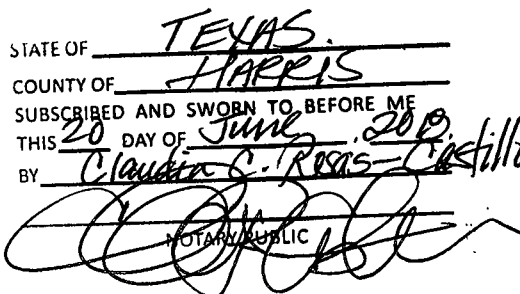 STATE OF TEXAS.
COUNTY OF HARRIS
SUBSCRIBED AND SWORN TO BEFORE ME
THIS 20 DAY OF June
BY Claudia C. Rosas-Castillo
NOTARY PUBLIC